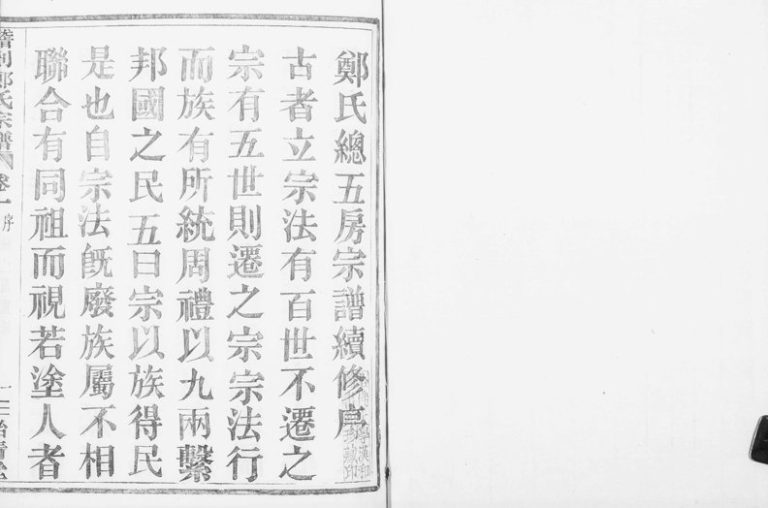 鄭氏總五房宗譜續修序
古者立宗法有百世不遷之
宗有五世則遷之宗宗法行
而族有所統周禮以九兩繫
邦國之民五曰宗以族得民
是也自宗法旣廢族屬不相
聯合有同祖而視若塗人者
鄭氏宗譜 卷一 序